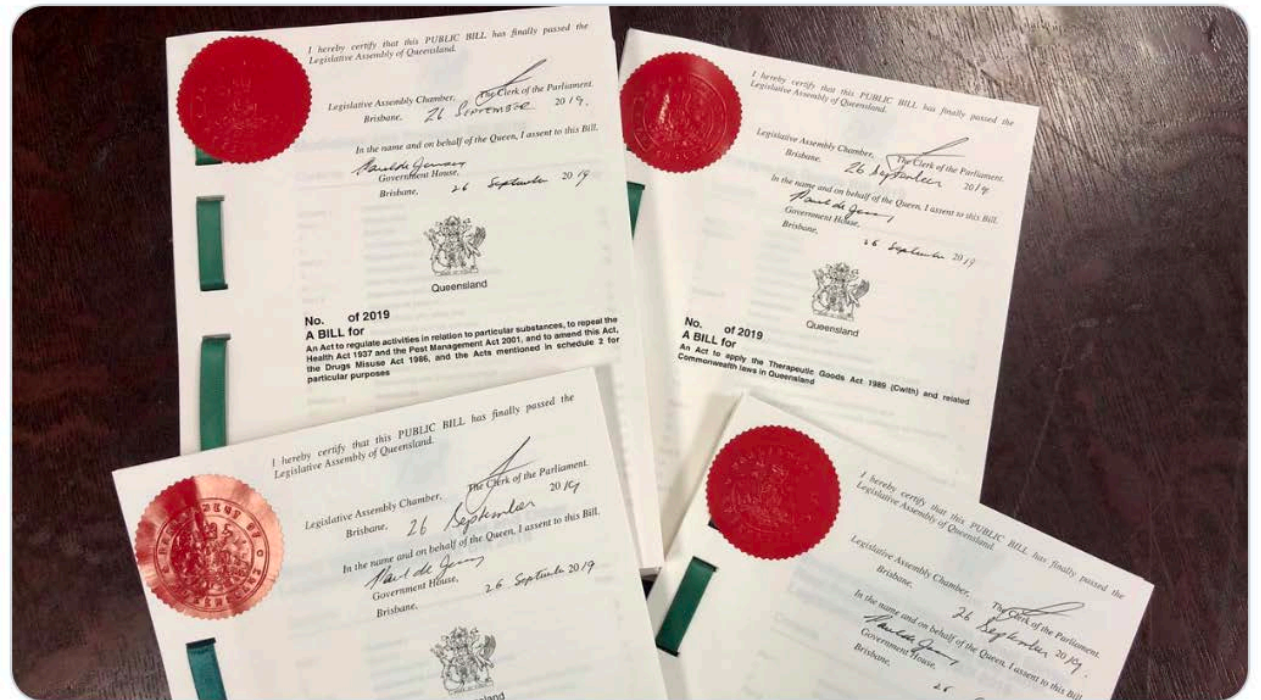 I hereby certify that this PUBLIC BILL has finally passed the
Legislative Assembly of Queensland.
Legislative Assembly Chamber, The Clerk of the Parliament.
Brisbane, 26 September 2019.
In the name and on behalf of the Queen, I assent to this Bill.
Paul de Jersey
Government House,
Brisbane, 26 September 2019
Queensland
No. of 2019
A BILL for
An Act to regulate activities in relation to particular substances, to repeal the
Health Act 1937 and the Pest Management Act 2001, and to amend this Act,
the Drugs Misuse Act 1986, and the Acts mentioned in schedule 2 for
particular purposes
I hereby certify that this PUBLIC BILL has finally passed the
Legislative Assembly of Queensland.
Legislative Assembly Chamber, The Clerk of the Parliament.
Brisbane, 26 September 2019
In the name and on behalf of the Queen, I assent to this Bill.
Paul de Jersey
Government House,
Brisbane, 26 September 2019
Queensland
No. of 2019
A BILL for
An Act to apply the Therapeutic Goods Act 1989 (Cwlth) and related
Commonwealth laws in Queensland
I hereby certify that this PUBLIC BILL has finally passed the
Legislative Assembly of Queensland.
Legislative Assembly Chamber, The Clerk of the Parliament.
Brisbane, 26 September 2019
In the name and on behalf of the Queen, I assent to this Bill.
Paul de Jersey
Government House,
Brisbane, 26 September 2019
PARLIAMENT OF QUEENSLAND
I hereby certify that this PUBLIC BILL has finally passed the
Legislative Assembly of Queensland.
Legislative Assembly Chamber, The Clerk of the Parliament.
Brisbane, 26 September 2019.
In the name and on behalf of the Queen, I assent to this Bill
Paul de Jersey
Government House,
Brisbane, 26